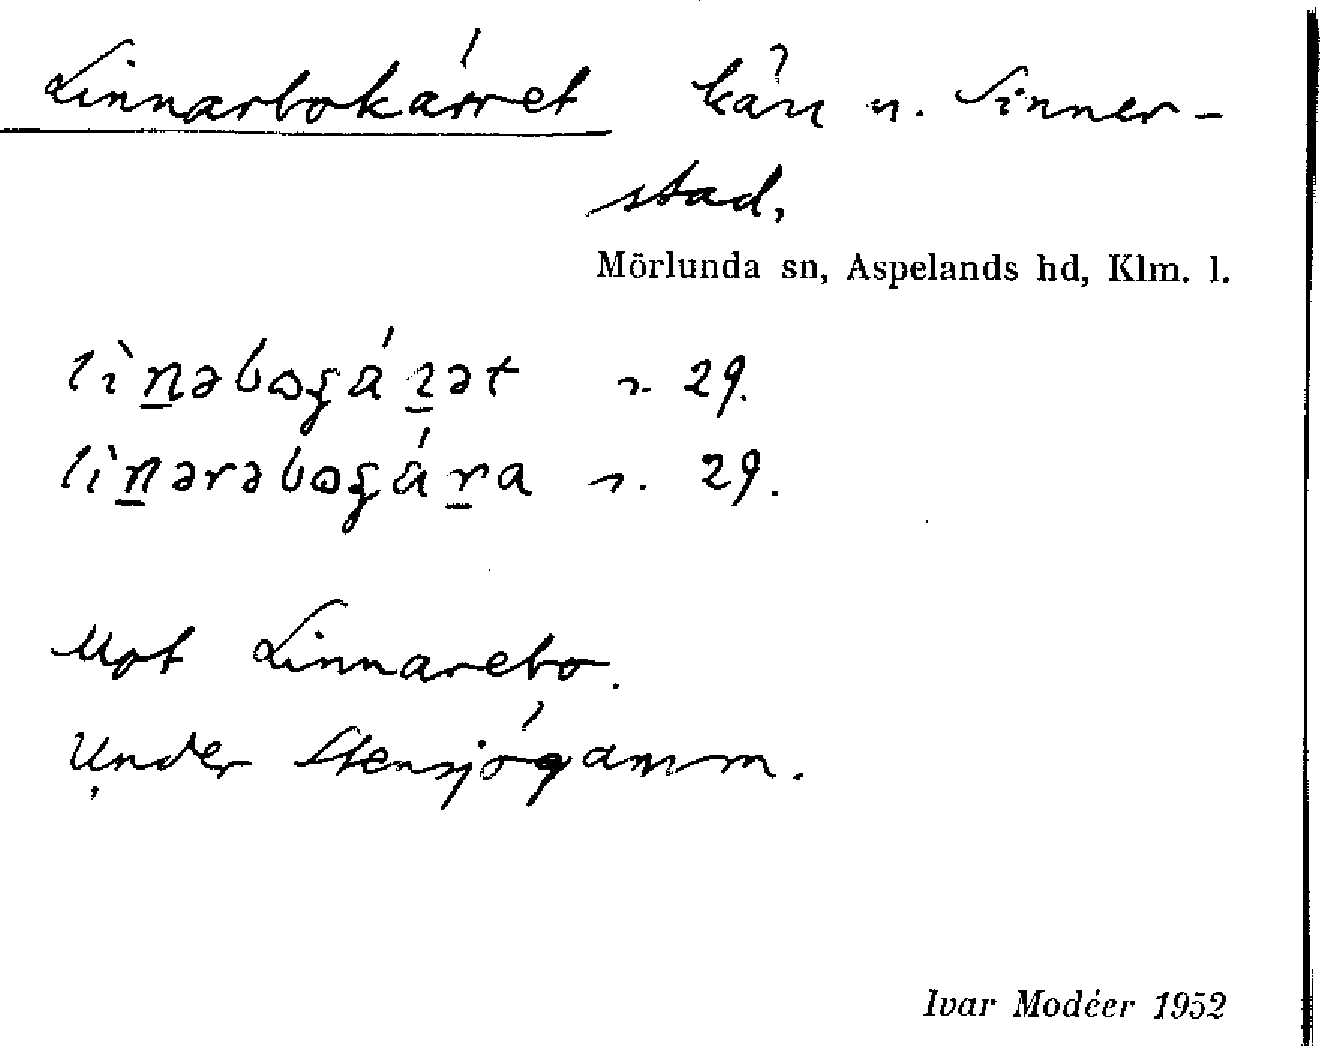 Linnarbokärret kärr n. Sinner-
stad,
Mörlunda sn, Aspelands hd, Klm. l.
lìn̲əbɷgá r̲ət r. 29.
lìn̲ərəbɷgá r̲a r. 29.
Mot Linnarebo.
Under Stensjögamm.
Ivar Modéer 1952